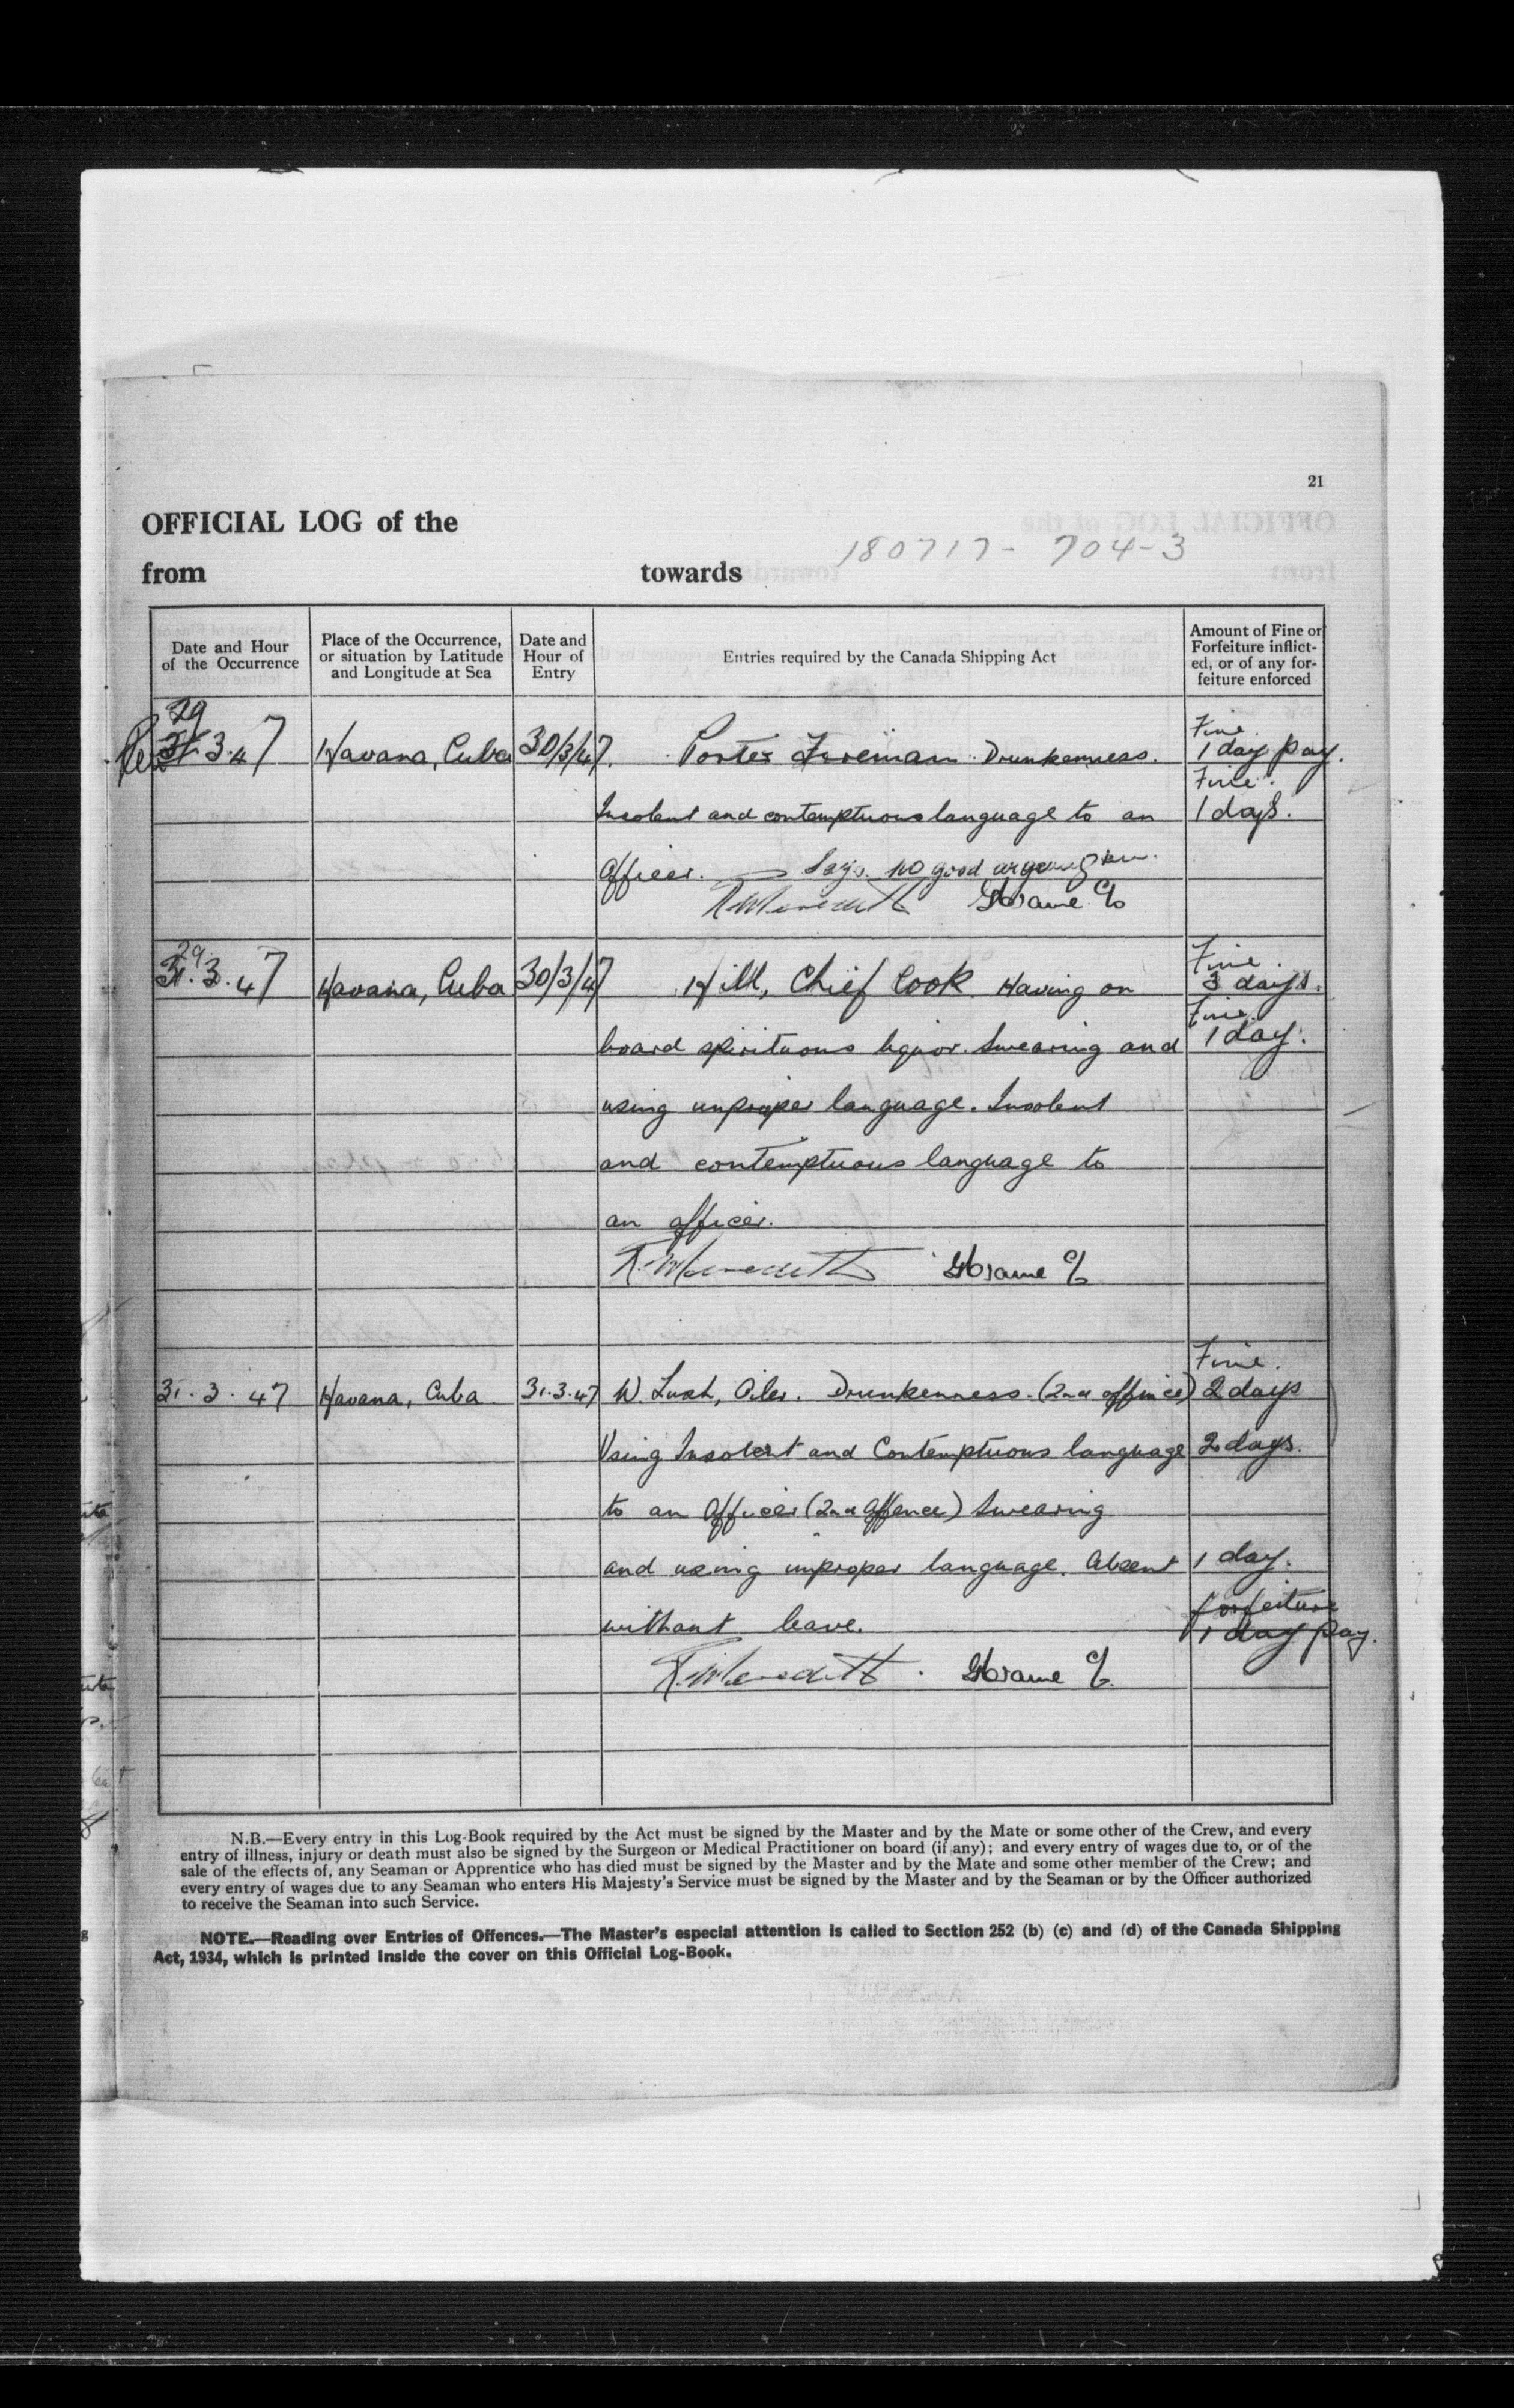 21
OFFICIAL LOG of the
180717- 704-3
from towards
Date and Hour of the Occurrence
Place of the Occurrence, or situation by Latitude and Longitude at Sea
Date and Hour of Entry
Entries required by the Canada Shipping Act
Amount of Fine or Forfeiture inflict-ed, or of any for-feiture enforced
29
31.3.47 Havana, Cuba 30/3/47. Porter Fireman Drunkenness. Fine. 1 day pay.
Insolent and contemptuous language to an Fine. 1 days.
Officer. Says no good arguing
R. Meredith C/o
29
31.3.47 Havana, Cuba 30/3/47 Hill, Chief Cook. Having on Fine. 3 days.
board spirituous liquor. Swearing and Fine. 1 day.
using improper language. Insolent
and contemptuous language to
an officer.
R. Meredith C/o
Fine.
31.3.47 Havana, Cuba. 31.3.47 W. Lush, Oiler. Drunkenness. (2nd offince) 2 days
Using Insolent and Contemptuous language 2 days.
to an Officer (2nd Offence) Swearing
and using improper language. Absent 1 day.
without leave. forfeiture 1 day pay.
R. Meredith. C/o
N.B.—Every entry in this Log-Book required by the Act must be signed by the Master and by the Mate or some other of the Crew, and every
entry of illness, injury or death must also be signed by the Surgeon or Medical Practitioner on board (if any); and every entry of wages due to, or of the
sale of the effects of, any Seaman or Apprentice who has died must be signed by the Master and by the Mate and some other member of the Crew; and
every entry of wages due to any Seaman who enters His Majesty's Service must be signed by the Master and by the Seaman or by the Officer authorized
to receive the Seaman into such Service.
NOTE.—Reading over Entries of Offences.—The Master's especial attention is called to Section 252 (b) (c) and (d) of the Canada Shipping
Act, 1934, which is printed inside the cover on this Official Log-Book.